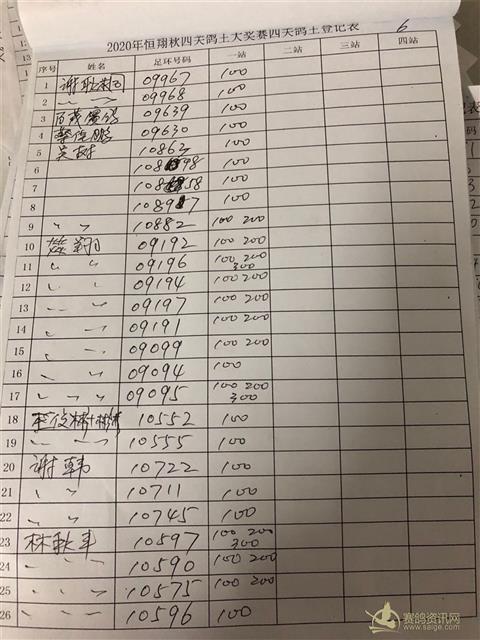 2020年恒翔秋四关鸽王大奖赛四关鸽王登记表 6
序号 姓名 足环号码 一站 二站 三站 四站
1 09967 100
2 〃 〃 09968 100
3 09639 100
4 09630 100
5 吴树 10863 100
6 100
7 100
8 100
9 〃 〃 10882 100 200
10 翔 09192 100 200
11 〃 〃 09196 100 200 300
12 〃 〃 09194 100 200
13 〃 〃 09197 100 200
14 〃 〃 09191 100 200
15 〃 〃 09099 100 200
16 〃 〃 09094 100
17 〃 〃 09095 100 200 300
18 10552 100
19 〃 〃 10555 100
20 谢韩 10722 100
21 〃 〃 10711 100
22 〃 〃 10745 100
23 林秋丰 10597 100 200 300
24 〃 〃 10590 100 200
25 〃 〃 10575 100 200
26 〃 〃 10596 100
赛鸽资讯网
www.saige.com